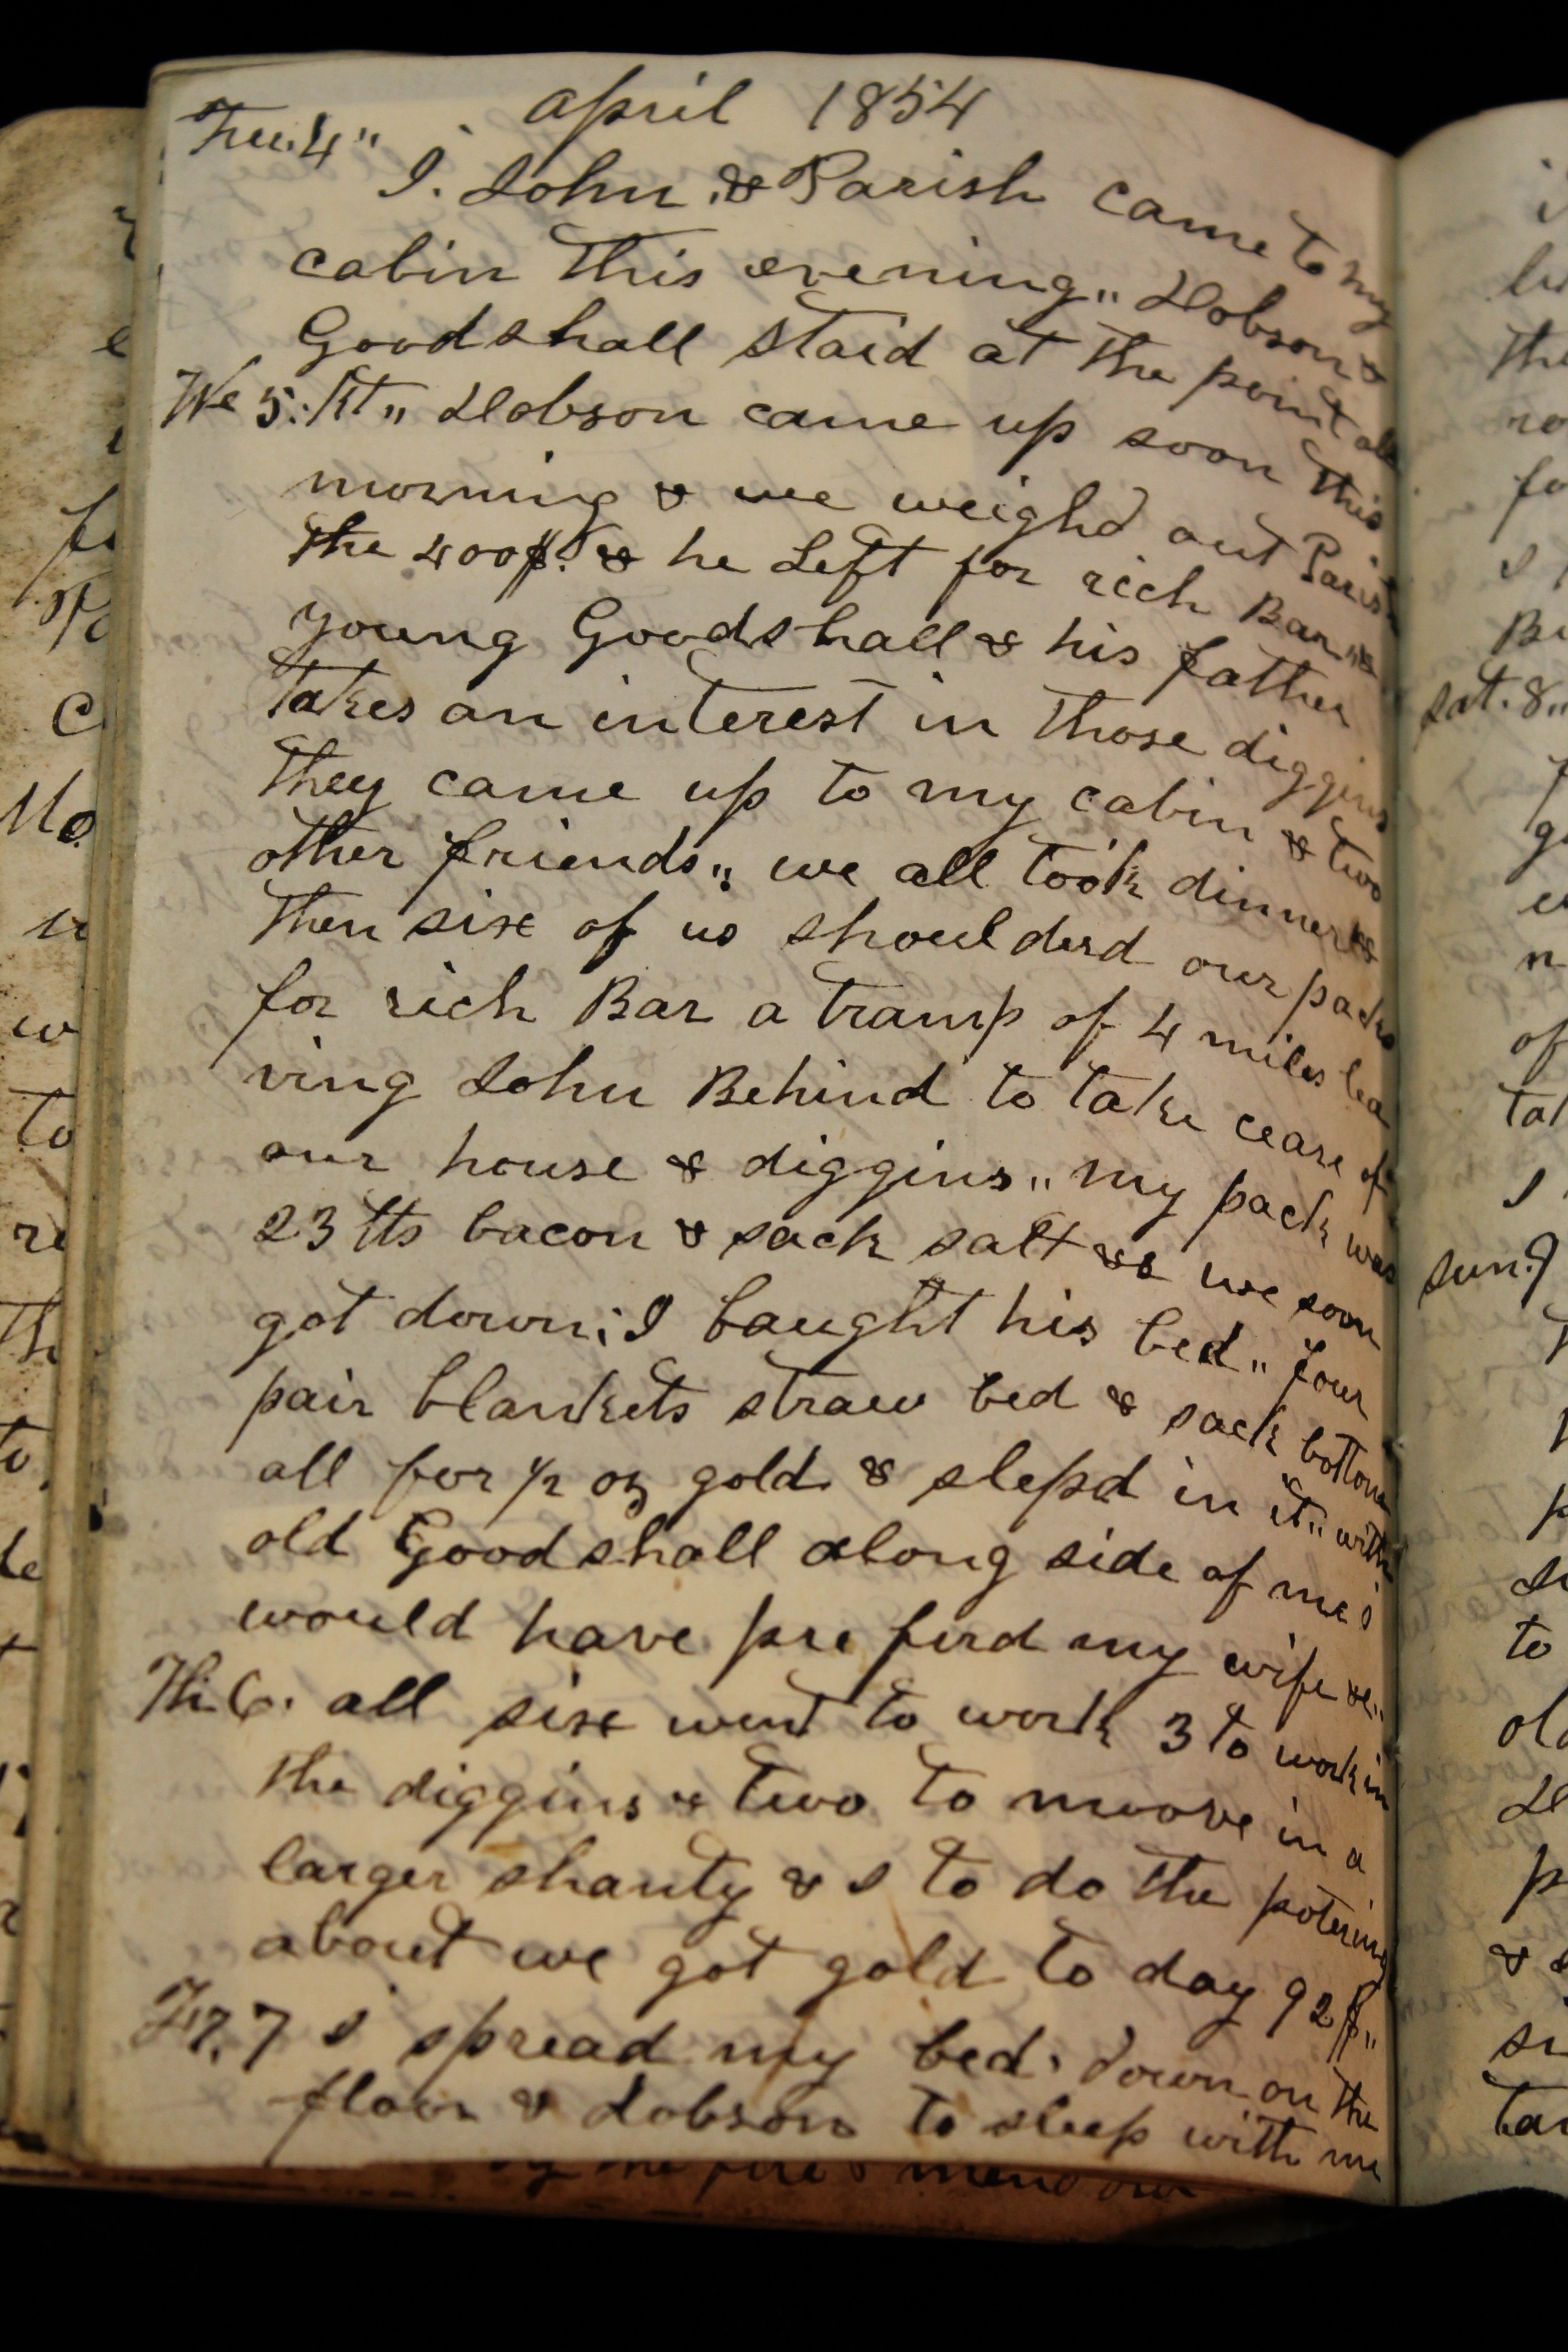 april 1854
Tue. 4" I. John & Parish came to my
cabin this evening,, Dobson &
Goodshall staid at the point all
We 5. Nt,, Dobson came up soon this
morning & we weighd out Parish
the 400$. & he Left for rich Bar,, &
young Goodshall & his father
takes an interest in those diggins
they came up to my cabin & two
other friends,, we all took dinner &
then sixe of us shoulderd our packs
for rich Bar a tramp of 4 miles lea
ving John Behind to take ceare of
our house & diggins,, my pack was
23 lbs bacon & sack salt && we soon
got down; I baught his bed,, four
pair blankets straw bed & sack bottom
all for 1/2 oz gold & slepd in it,, with
old Goodshall along side of me i
would have preferd my wife &c,,
Th. 6. all sixe went to work 3 to work in
the diggins & two to moove in a
larger shanty & I to do the potering
about we got gold to day 92$,,
Fr. 7 I spread my bed. down on the
floor & dobson to sleep with me
by the fire & mend our
sat. 8,,
sun. 9